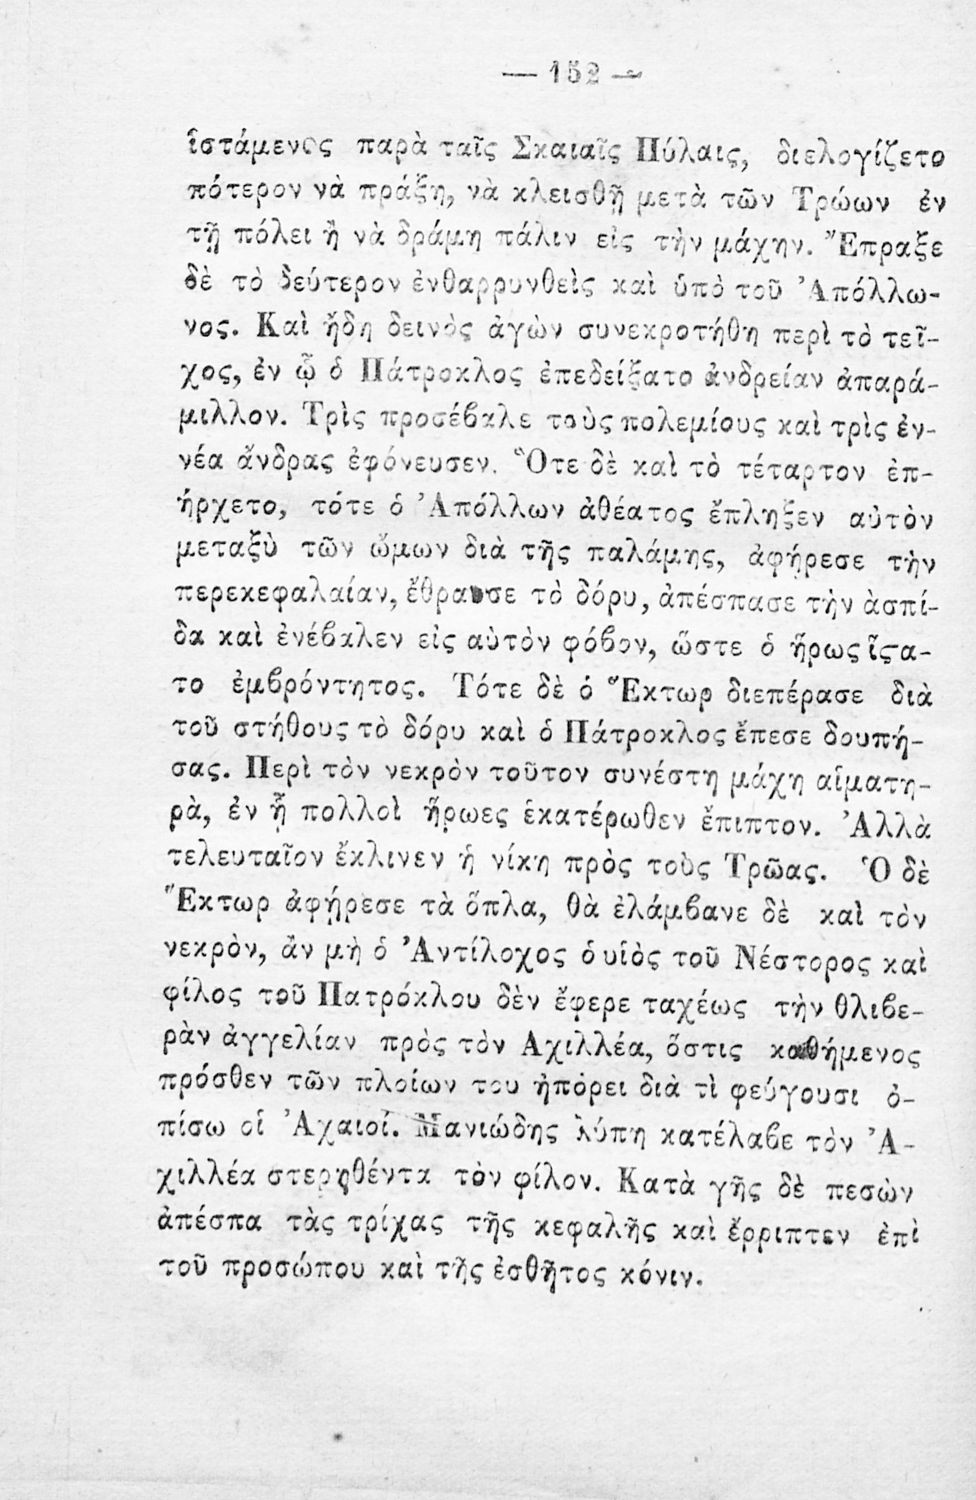 — 152 —
ἱστάμενος παρὰ ταῖς Σκαιαῖς Πύλαις, διελογίζετο
πότερον νὰ πράξῃ, νὰ κλεισθῇ μετὰ τῶν Τρώων ἐν
τῇ πόλει ἢ νὰ δράμῃ πάλιν εἰς τὴν μάχην. Ἔπραξε
δὲ τὸ δεύτερον ἐνθαρρυνθεὶς καὶ ὑπὸ τοῦ Ἀπόλλω-
νος. Καὶ ἤδη δεινὸς ἀγὼν συνεκροτήθη περὶ τὸ τεῖ-
χος, ἐν ᾧ ὁ Πάτροκλος ἐπεδείξατο ἀνδρείαν ἀπαρά-
μιλλον. Τρὶς προσέβαλε τοὺς πολεμίους καὶ τρὶς ἐν-
νέα ἄνδρας ἐφόνευσεν. Ὅτε δὲ καὶ τὸ τέταρτον ἐπ-
ήρχετο, τότε ὁ Ἀπόλλων ἀθέατος ἔπληξεν αὐτὸν
μεταξὺ τῶν ὤμων διὰ τῆς παλάμης, ἀφῄρεσε τὴν
περεκεφαλαίαν, ἔθραυσε τὸ δόρυ, ἀπέσπασε τὴν ἀσπί-
δα καὶ ἐνέβαλεν εἰς αὐτὸν φόβον, ὥστε ὁ ἥρως ἵστα-
το ἐμβρόντητος. Τότε δὲ ὁ Ἕκτωρ διεπέρασε διὰ
τοῦ στήθους τὸ δόρυ καὶ ὁ Πάτροκλος ἔπεσε δουπή-
σας. Περὶ τὸν νεκρὸν τοῦτον συνέστη μάχη αἱματη-
ρὰ, ἐν ᾗ πολλοὶ ἥρωες ἑκατέρωθεν ἔπιπτον. Ἀλλὰ
τελευταῖον ἔκλινεν ἡ νίκη πρὸς τοὺς Τρῶας. Ὁ δὲ
Ἕκτωρ ἀφῄρεσε τὰ ὅπλα, θὰ ἐλάμβανε δὲ καὶ τὸν
νεκρὸν, ἂν μὴ ὁ Ἀντίλοχος ὁ υἱὸς τοῦ Νέστορος καὶ
φίλος τοῦ Πατρόκλου δὲν ἔφερε ταχέως τὴν θλιβε-
ρὰν ἀγγελίαν πρὸς τὸν Αχιλλέα, ὅστις καθήμενος
πρόσθεν τῶν πλοίων του ἠπόρει διὰ τὶ φεύγουσι ὀ-
πίσω οἱ Ἀχαιοί. Μανιώδης λύπη κατέλαβε τὸν Ἀ-
χιλλέα στερηθέντα τὸν φίλον. Κατὰ γῆς δὲ πεσὼν
ἀπέσπα τὰς τρίχας τῆς κεφαλῆς καὶ ἔρριπτεν ἐπὶ
τοῦ προσώπου καὶ τῆς ἐσθῆτος κόνιν.